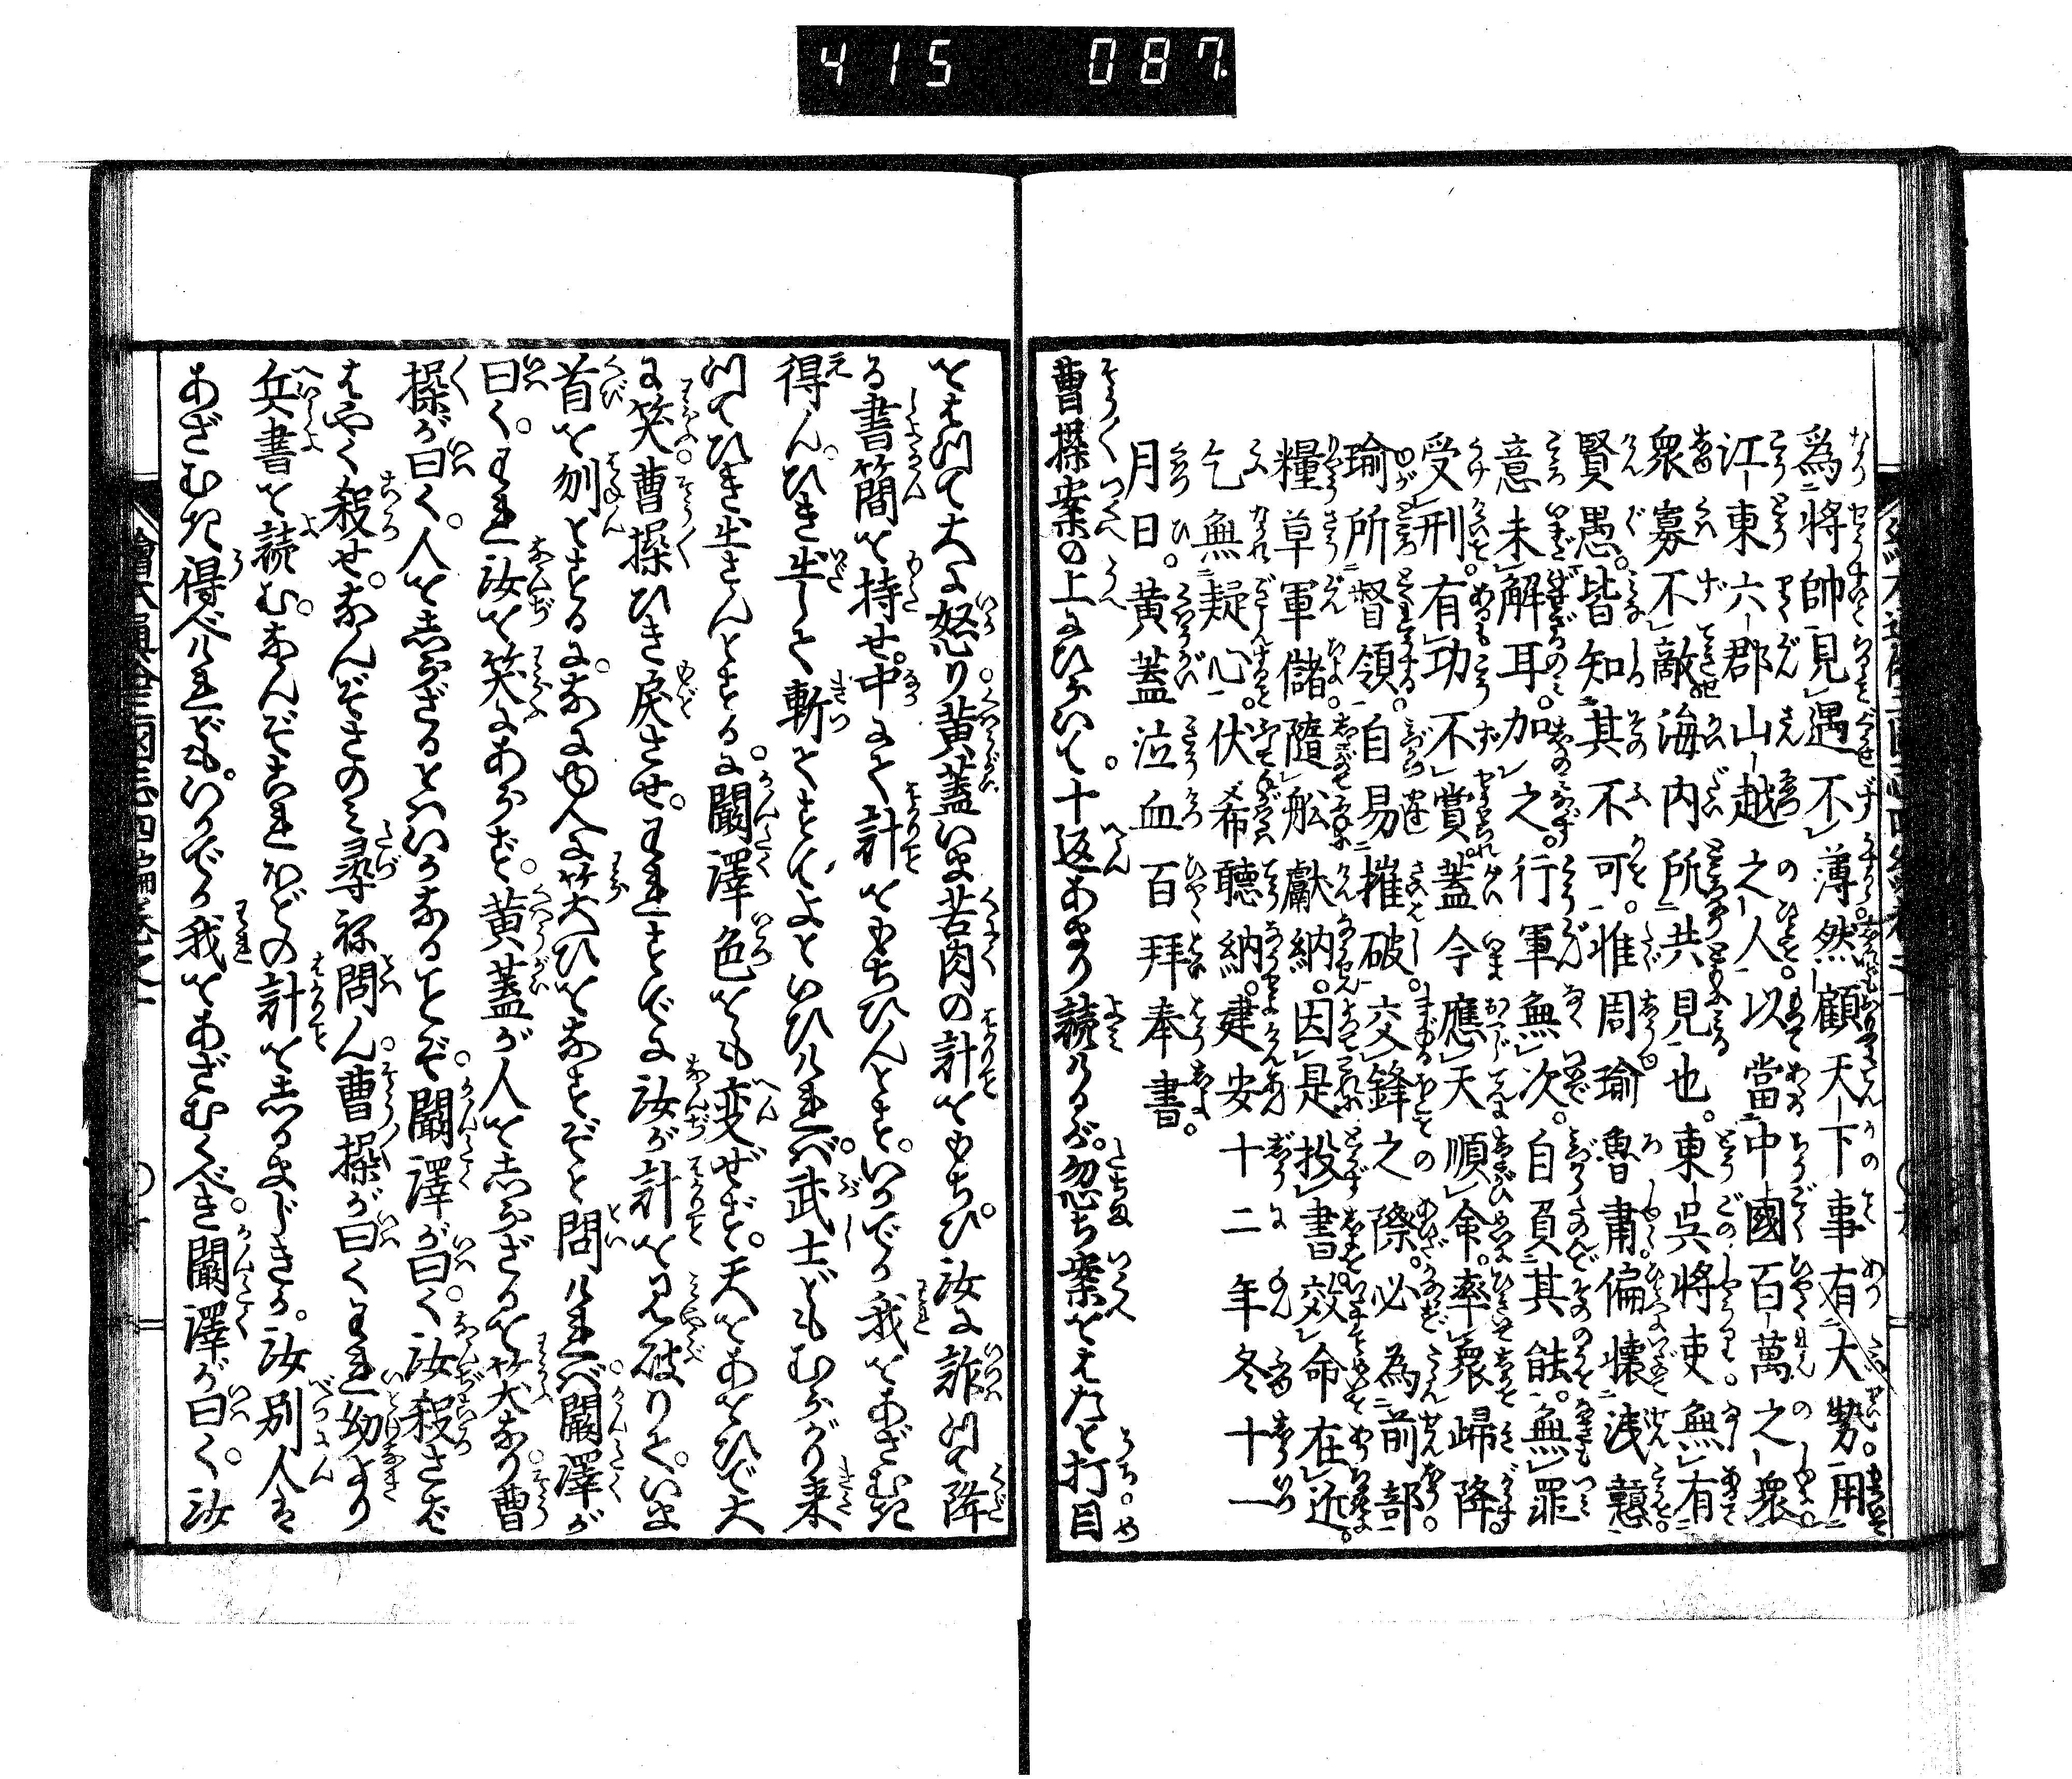 415 087.
爲將帥見遇不薄然顧天下事有大勢用
江東六郡山越之人以當中國百萬之衆
衆寡不敵海内所共見也。東呉將吏無有
賢愚。皆知其不可。惟周瑜魯肅偏懐浅戇
意未解耳。加之。行軍無次。自負其能。無罪
受刑。有功不賞。蓋今應天順命。率衆歸降。
瑜所督領。自易摧破。交鋒之際。必為前部
糧草軍儲。隨舩獻納。因是投書效命在近。
乞無疑心。伏希聴納。建安十二年冬十一
月日。黄蓋泣血百拜奉書。
曹操案の上にひらいて。十返あまり読けるが。忽ち案をはたと打。目
をはつて大に怒り。黄蓋いま苦肉の計をもちひ。汝に詐つて降
る書簡を持せ。中にて計をもちひんとす。いかでか我をあざむき
得ん。ひき出して斬てすてよといひければ。武士どもむらがり来
つてひき出さんとする。に闞澤色をも変ぜず。天をあをひで大
に笑。曹操ひき戻させ。われすでに汝が計を見破りて。いま
首を刎とするに。なに由へに笑ひをなすぞと問ければ。闞澤が
曰く。われ汝を笑にあらず。黄蓋が人をしらざるを笑なり。曹
操が曰く。人をしらざるとはいかなることぞ。闞澤が曰。く汝殺さば
はやく殺せ。なんぞさのみ尋ね問ん。曹操が曰くわれ幼より
兵書を読む。なんぞこれほどの計をしるまじきか。汝別人は
あざむき得べけれども。いかでか我をあざむくべき。闞澤が曰く。汝
繪本通俗三國志四編巻之一